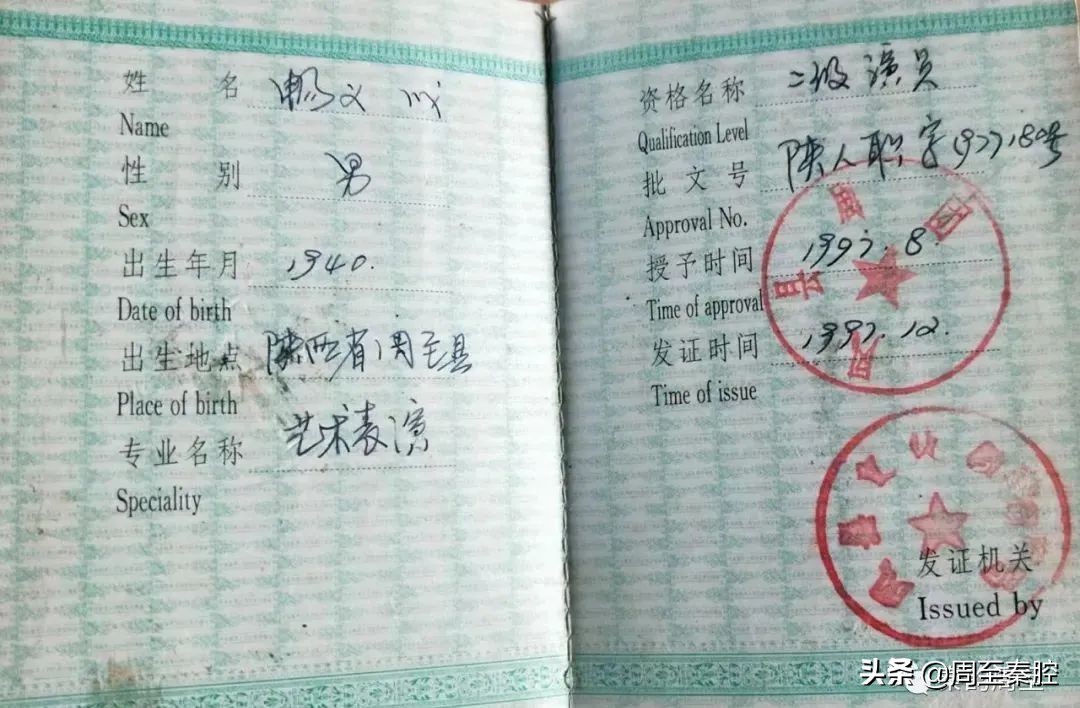 姓 名 杨文川
Name
性 别 男
Sex
出生年月 1940.
Date of birth
出生地点 陕西省周至县
Place of birth
专业名称 艺术表演
Speciality
资格名称 二级演员
Qualification Level
批文号 陕人职字(97)180号
Approval No.
授予时间 1997.8.
Time of approval
发证时间 1997.12.
Time of issue
发证机关
Issued by
头条 @周至秦腔